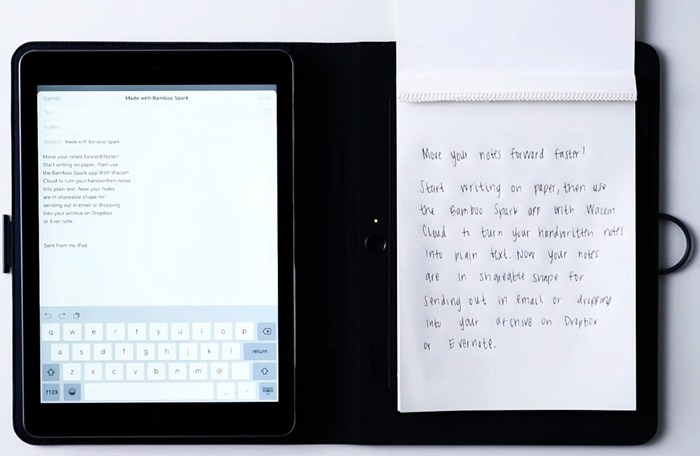 Cancel
Made with Bamboo Spark
Send
To:
Subject: Made with Bamboo Spark
Move your notes forward faster!
Start writing on paper, then use
the Bamboo Spark app With Wacom
Cloud to turn your handwritten notes
Into plain text. Now your notes
are In shareable shape for
sending out in email or dropping
Into your archive on Dropbox
or Ever note.
Sent from my iPad
q w e r t y u i o p
a s d f g h j k l return
z x c v b n m @ .
?123
Move your notes forward faster!
Start writing on paper, then use
the Bamboo Spark app with Wacom
Cloud to turn your handwritten notes
into plain text. Now your notes
are in shareable shape for
sending out in email or dropping
into your archive on Dropbox
or Evernote.